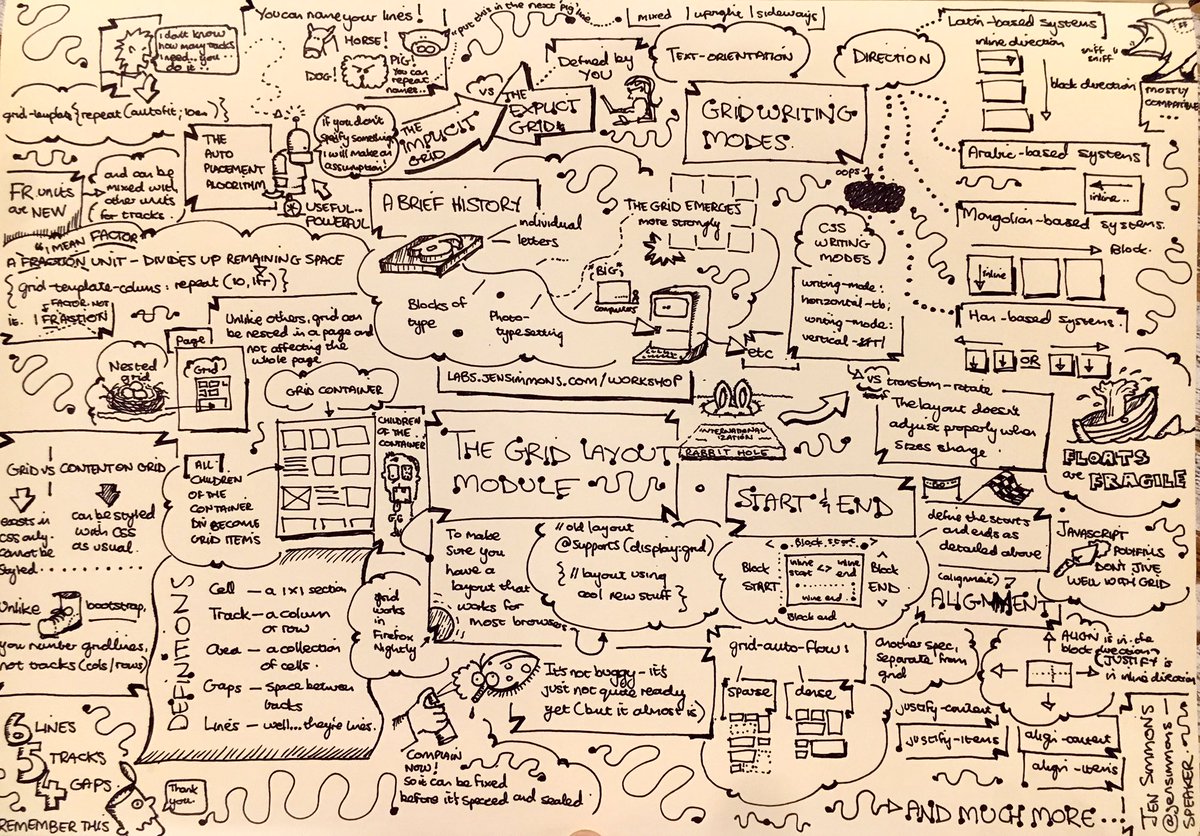 You can name your lines!
"put this in the next 'pig' line."
mixed | upright | sideways
Latin-based systems
I don't know
how many tracks
I need... you
do it!!
HORSE!
DOG!
PIG!
You can
repeat
names..
Defined by
YOU
TEXT-ORIENTATION
DIRECTION
inline direction
block direction
sniff
sniff
MOSTLY
grid-template {repeat (autofit, 10em)}
THE
AUTO
PLACEMENT
ALGORITHM
If you don't
specify something
I will make an
assumption!
THE IMPLICIT
GRID
VS
THE
EXPLICIT
GRID
GRID WRITING
MODES.
Arabic-based systems
inline..
FR units
are NEW
and can be
mixed with
other units
for tracks.
USEFUL..
POWERFUL
A BRIEF HISTORY
individual
letters
THE GRID EMERGES
more strongly
oops
CSS
WRITING
MODES
writing-mode:
horizontal-tb;
writing-mode:
vertical-
Mongolian-based systems.
Block.
inline
"I MEAN FACTOR
A FRACTION UNIT - DIVIDES UP REMAINING SPACE
{grid-template-colums: repeat (10, 1fr)}
FACTOR. NOT
ie. 1 FRACTION
Blocks of
type
Photo-
typesetting
(BIG)
computers
etc
Han-based systems.
OR
Page
Grid
Nested
grid
Unlike others, grid can
be nested in a page and
not affecting the
whole page
LABS.JENSIMMONS.COM/WORKSHOP
VS transform-rotate
The layout doesn't
adjust properly when
sizes change.
FLOATS
are FRAGILE
GRID CONTAINER
CHILDREN
OF THE
CONTAINER
THE GRID LAYOUT
MODULE
INTERNATIONAL
IZATION
RABBIT HOLE
GRID VS CONTENT ON GRID
exists in
CSS only.
Cannot be
styled
can be styled
with CSS
as usual.
ALL
CHILDREN
OF THE
CONTAINER
DIV BECOME
GRID ITEMS
START & END
GO
define the starts
and ends as
detailed above
JAVASCRIPT
POLYFILLS
DON'T JIVE
WELL WITH GRID
To make
sure you
have a
layout that
works for
most browsers
//old layout
@supports (display:grid)
{ // layout using
cool new stuff }
Block start
Block
START
inline
start
<>
inline
end
Block
END
Block end
Unlike bootstrap,
you number gridlines,
not tracks (cols/rows)
DEFINITIONS
Cell - a 1x1 section
Track - a column
or row
Area - a collection
of cells.
Gaps - Space between
tracks
Lines - well... they're lines.
grid
works
in
Firefox
Nightly
(alignment)
ALIGNMENT
Another spec,
separate from
grid
ALIGN is in the
block direction
(JUSTIFY is
in inline direction)
It's not buggy - it's
just not quite ready
yet (but it almost is)
grid-auto-flow:
sparse
dense
justify-content
justify-items
align-content
align-items
6 LINES
5 TRACKS
4 GAPS
REMEMBER THIS
Thank
you.
COMPLAIN
NOW!
So it can be fixed
before it's specced and sealed.
AND MUCH MORE...
JEN SIMMONS
@jensimmons -
SPEAKER